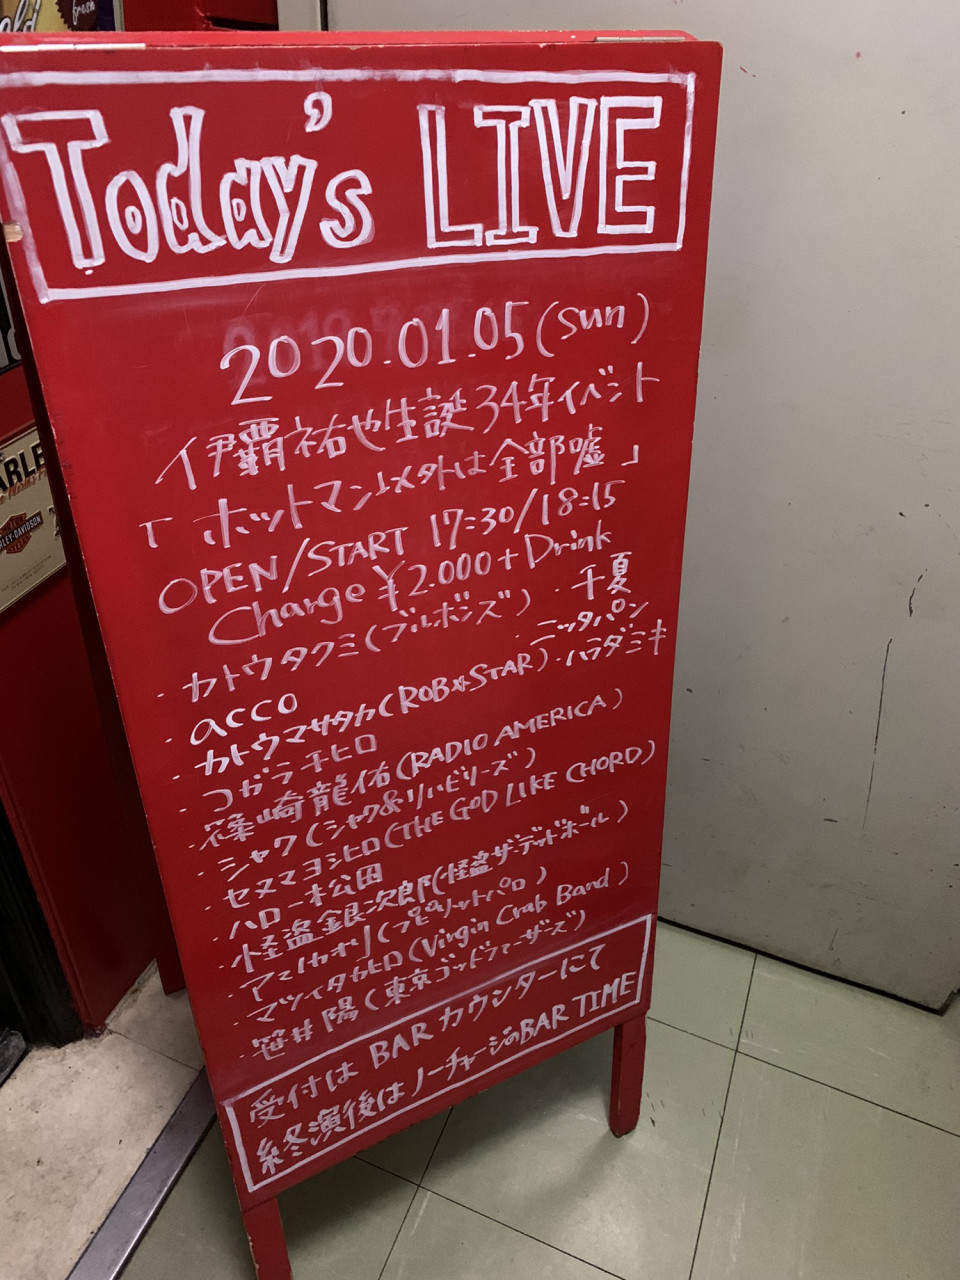 Today's LIVE
2020.01.05(sun)
伊覇祐也生誕34年イベント
「ホットマン以外は全部嘘」
OPEN/START 17:30/18:15
Charge ¥2.000+Drink
・カトウタクミ(ブルボンズ) ・千夏
・acco ・ニッタパン
・カトウマサタカ(ROB★STAR)・ハラダミキ
・コガラチヒロ
・篠崎龍佑(RADIO AMERICA)
・シャク(シャク&リハビリーズ)
・セヌマヨシヒロ(THE GOD LIKE CHORD)
・ハロー松田
・怪盗銀次郎(怪盗ザデッドボール)
・アマノカオリ(プピリットパロ)
・マツイタカヒロ(Virgin Crab Band)
・笹井陽(東京ゴッドファーザーズ)
受付は BARカウンターにて
終演後はノーチャージのBAR TIME
fresh
HARLEY-DAVIDSON